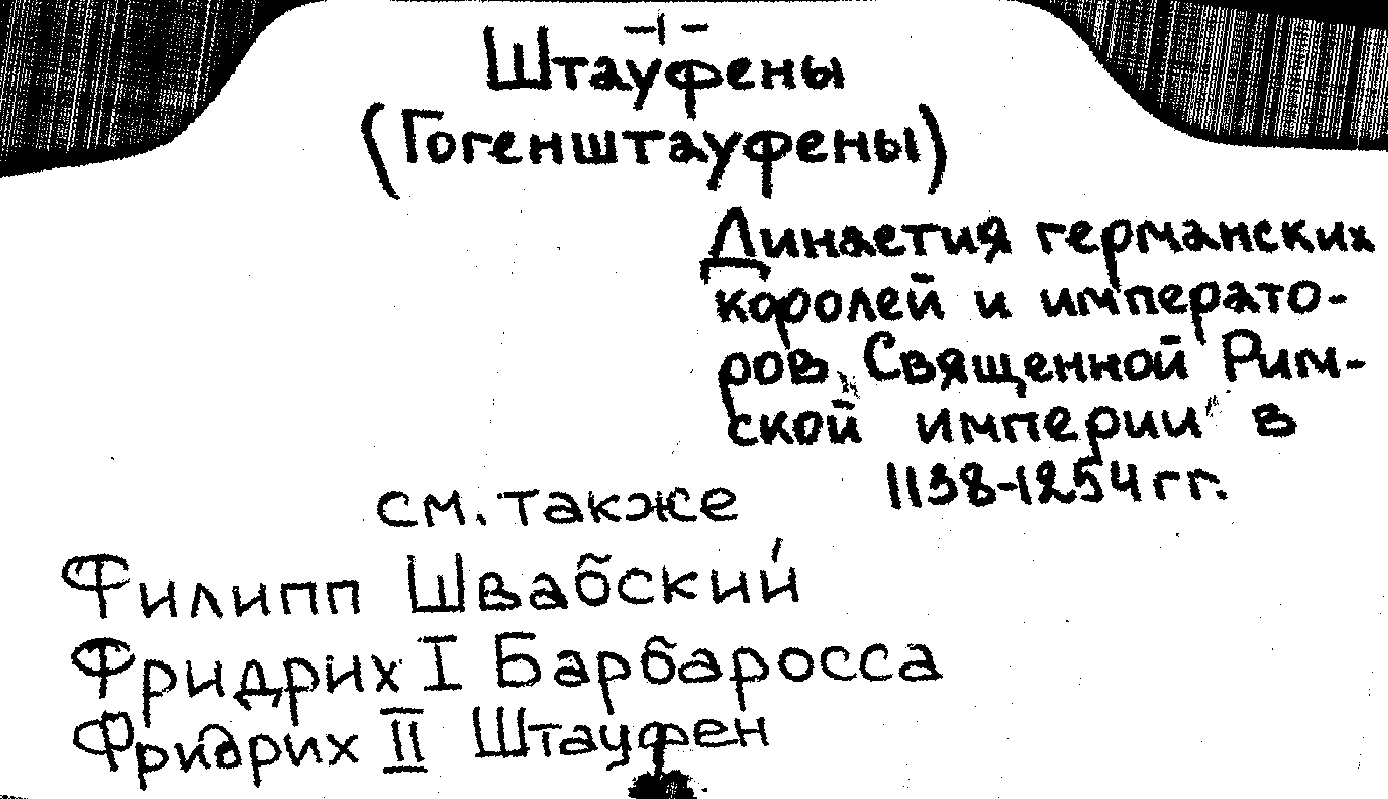 Штауфены
(Гогенштауфены)
Династия германских
королей и императо-
ров „Священной Рим-
ской империи" в
1138-1254 гг.
см. также
Филипп Швабский
Фридрих I Барбаросса
Фридрих II Штауфен